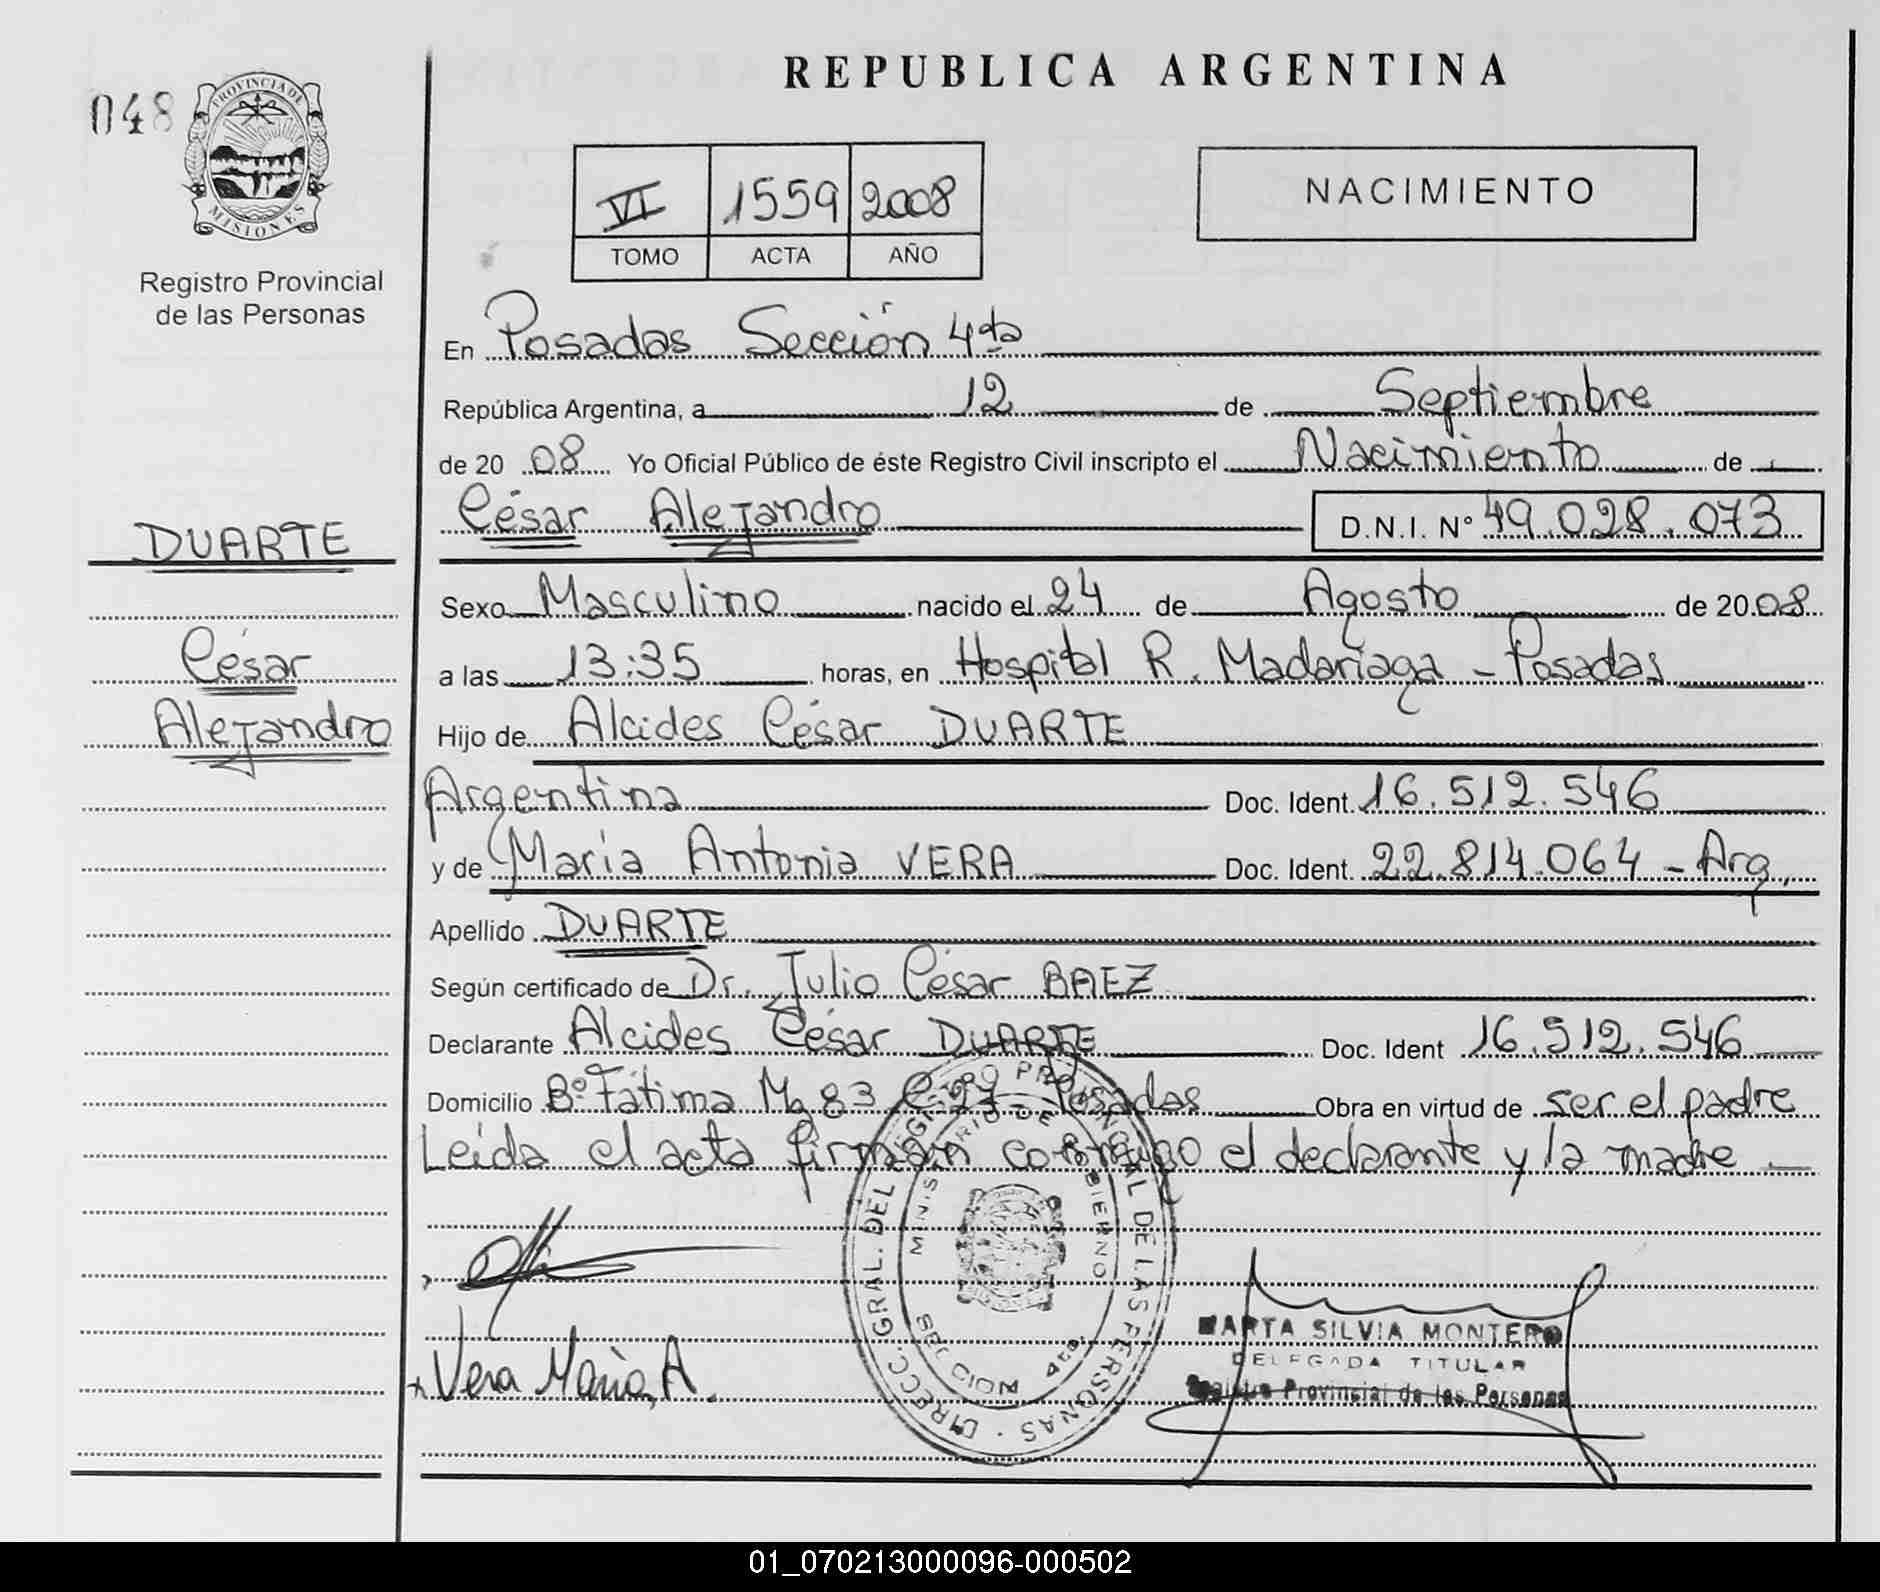 REPUBLICA ARGENTINA
048
PROVINCIA DE
MISIONES
Registro Provincial
de las Personas
VI 1559 2008
TOMO ACTA AÑO
NACIMIENTO
En Posadas Sección 4ta
República Argentina, a 12 de Septiembre
de 20 08 Yo Oficial Público de éste Registro Civil inscripto el Nacimiento de
César Alejandro D.N.I. Nº 49.028.073
DUARTE
César
Alejandro
Sexo Masculino nacido el 24 de Agosto de 20 08
a las 13:35 horas, en Hospital R. Madariaga - Posadas
Hijo de Alcides César DUARTE
Argentina Doc. Ident. 16.512.546
y de María Antonia VERA Doc. Ident. 22.814.064 - Arg.
Apellido DUARTE
Según certificado de Dr. Julio César BAEZ
Declarante Alcides César DUARTE Doc. Ident 16.512.546
Domicilio Bº Fátima Mz 83 C. 27 - Posadas Obra en virtud de ser el padre
Leída el acta firman conmigo el declarante y la madre
DIRECC. GRAL. DEL REGISTRO PROVINCIAL DE LAS PERSONAS
MINISTERIO DE GOBIERNO
4ta.
Vera María, A.
MARTA SILVIA MONTERO
DELEGADA TITULAR
Registro Provincial de las Personas
01_070213000096-000502